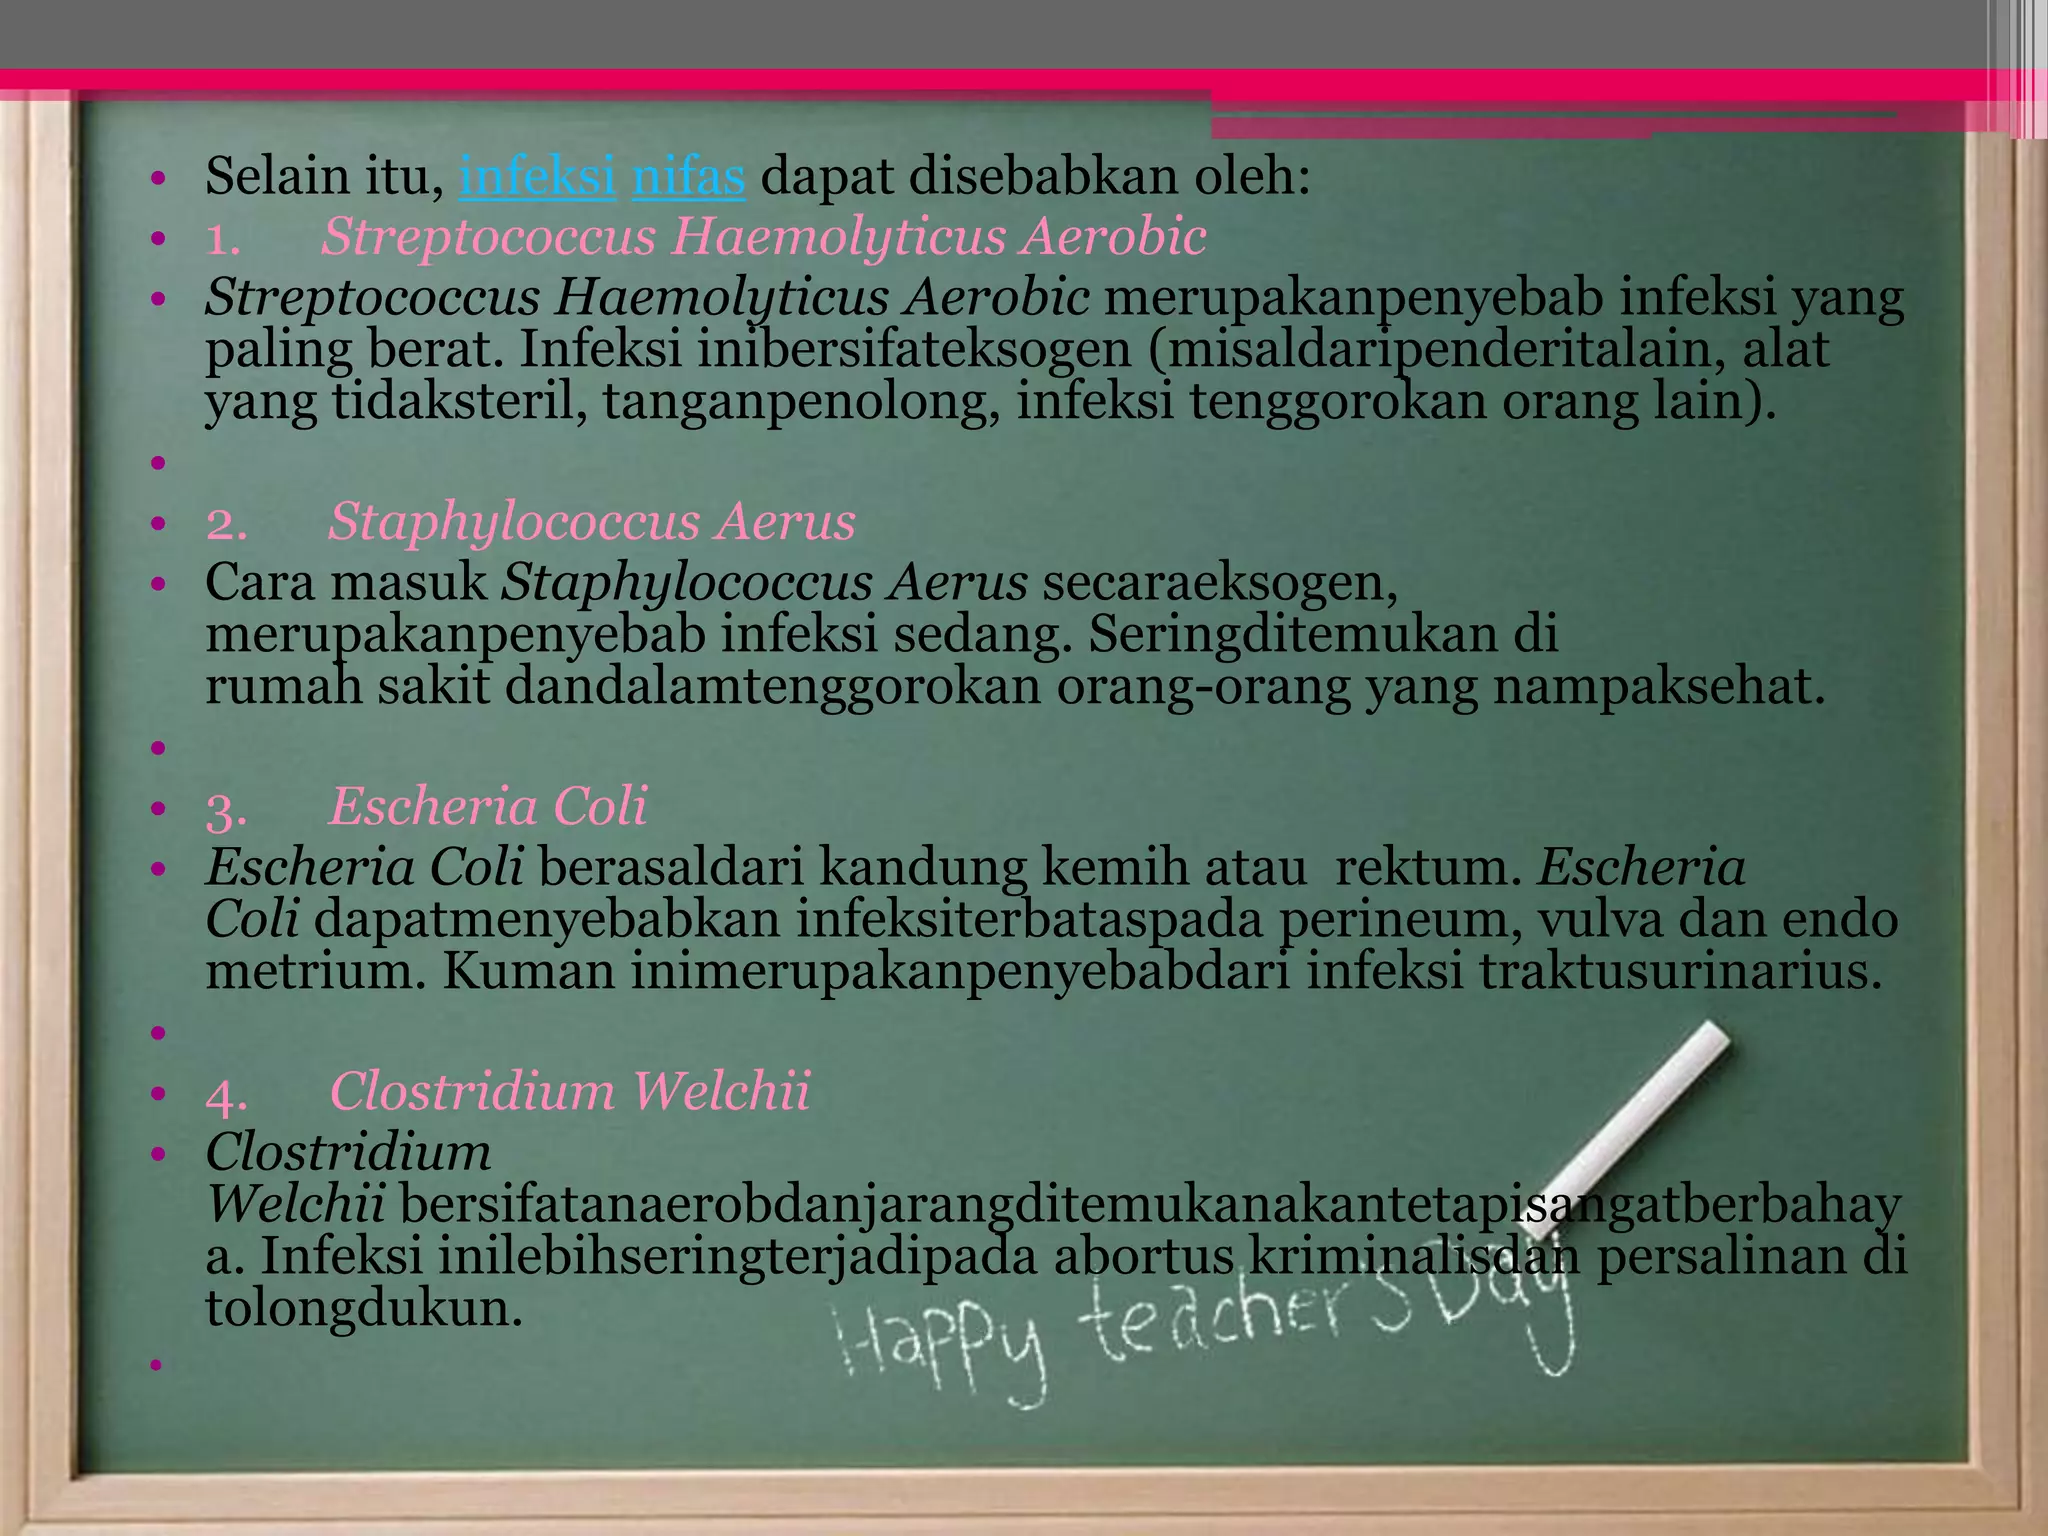 • Selain itu, infeksi nifas dapat disebabkan oleh:
• 1. Streptococcus Haemolyticus Aerobic
• Streptococcus Haemolyticus Aerobic merupakanpenyebab infeksi yang
paling berat. Infeksi inibersifateksogen (misaldaripenderitalain, alat
yang tidaksteril, tanganpenolong, infeksi tenggorokan orang lain).
•
• 2. Staphylococcus Aerus
• Cara masuk Staphylococcus Aerus secaraeksogen,
merupakanpenyebab infeksi sedang. Seringditemukan di
rumah sakit dandalamtenggorokan orang-orang yang nampaksehat.
•
• 3. Escheria Coli
• Escheria Coli berasaldari kandung kemih atau  rektum. Escheria
Coli dapatmenyebabkan infeksiterbataspada perineum, vulva dan endo
metrium. Kuman inimerupakanpenyebabdari infeksi traktusurinarius.
•
• 4. Clostridium Welchii
• Clostridium
Welchii bersifatanaerobdanjarangditemukanakantetapisangatberbahay
a. Infeksi inilebihseringterjadipada abortus kriminalisdan persalinan di
tolongdukun.
•
Happy teacher's Day